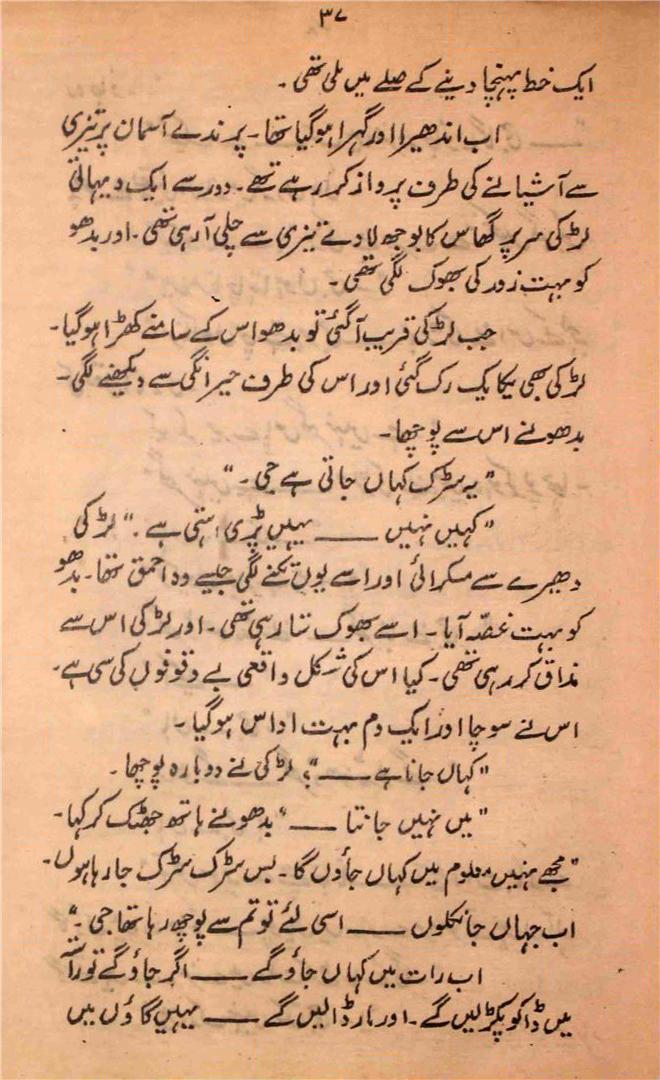 ۳۷
ایک خط پہنچا دینے کے صلے میں ملی تھی۔
اب اندھیرا اور گہرا ہو گیا تھا۔ پرندے آسمان پر تیزی
سے آشیانے کی طرف پرواز کر رہے تھے۔ دور سے ایک دیہاتی
لڑکی سر پر گھاس کا بوجھ لادے تیزی سے چلی آ رہی تھی۔ اور بدھو
کو بہت زور کی بھوک لگی تھی۔
جب لڑکی قریب آ گئی تو بدھو اس کے سامنے کھڑا ہو گیا۔
لڑکی بھی یکایک رک گئی اور اس کی طرف حیرانگی سے دیکھنے لگی۔
بدھو نے اس سے پوچھا۔
"یہ سڑک کہاں جاتی ہے جی۔"
"کہیں نہیں ــــــ یہیں پڑی رہتی ہے۔" لڑکی
دھیرے سے مسکرائی اور اسے یوں تکنے لگی جیسے وہ احمق تھا۔ بدھو
کو بہت غصّہ آیا۔ اسے بھوک ستا رہی تھی۔ اور لڑکی اس سے
مذاق کر رہی تھی۔ کیا اس کی شکل واقعی بے وقوفوں کی سی ہے۔
اس نے سوچا اور ایک دم بہت اداس ہو گیا۔
"کہاں جانا ہے ــــــ"؟ لڑکی نے دوبارہ پوچھا۔
"میں نہیں جانتا ــــــ" بدھو نے ہاتھ جھٹک کر کہا۔
"مجھے نہیں معلوم میں کہاں جاؤں گا۔ بس سڑک سڑک جا رہا ہوں۔
اب جہاں جا نکلوں ــــــ اسی لئے تو تم سے پوچھ رہا تھا جی۔"
اب رات میں کہاں جاؤ گے ــــــ اگر جاؤ گے تو راستے
میں ڈاکو پکڑ لیں گے۔ اور مار ڈالیں گے ــــــ یہیں گاؤں میں